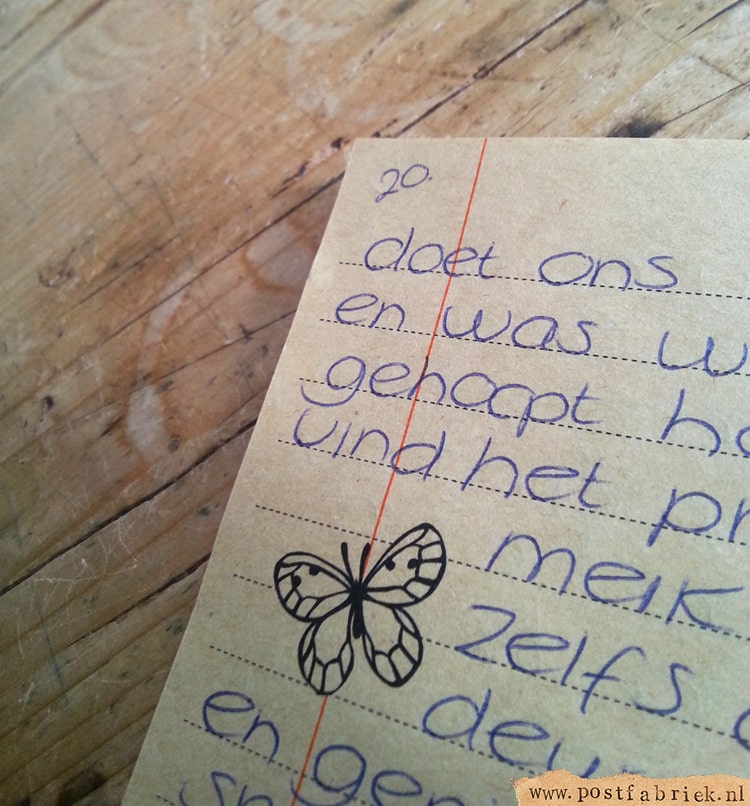 20.
doet ons
en was
gehoopt
vind het
melk
zelfs
en
www.postfabriek.nl